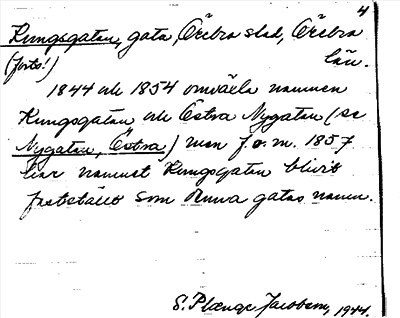 4
Kungsgatan, gata, Örebro stad, Örebro
(forts!) län.
1844 och 1854 omväxla namnen
Kungsgatan och Östra Nygatan (se
Nygatan, Östra) men f.o.m. 1857
har namnet Kungsgatan blivit
fastställt som denna gatas namn.
S. Plænge Jacobson, 1944.